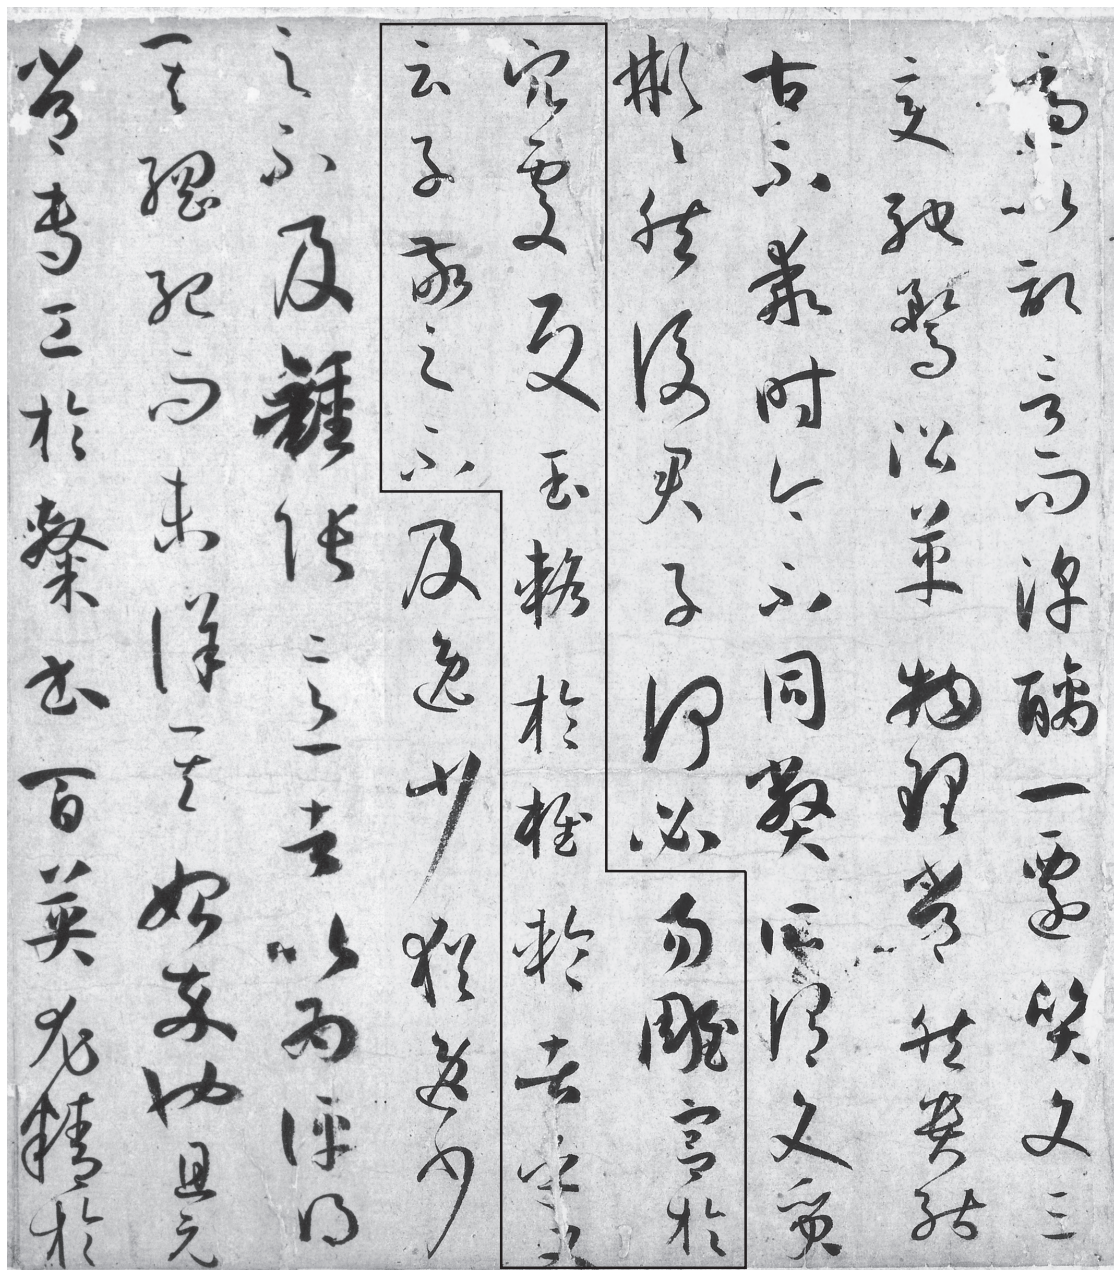 適以記言而淳醨一遷質文三
變馳騖沿革物理常然貴能
古不乖時今不同弊所謂文質
彬々然後君子何必易雕宮於
穴處反玉輅於椎輪者乎又
云子敬之不及逸少猶逸少
之不及鍾張意者以為評得
其綱紀而未詳其始卒也且元
常專工於隸書百英尤精於